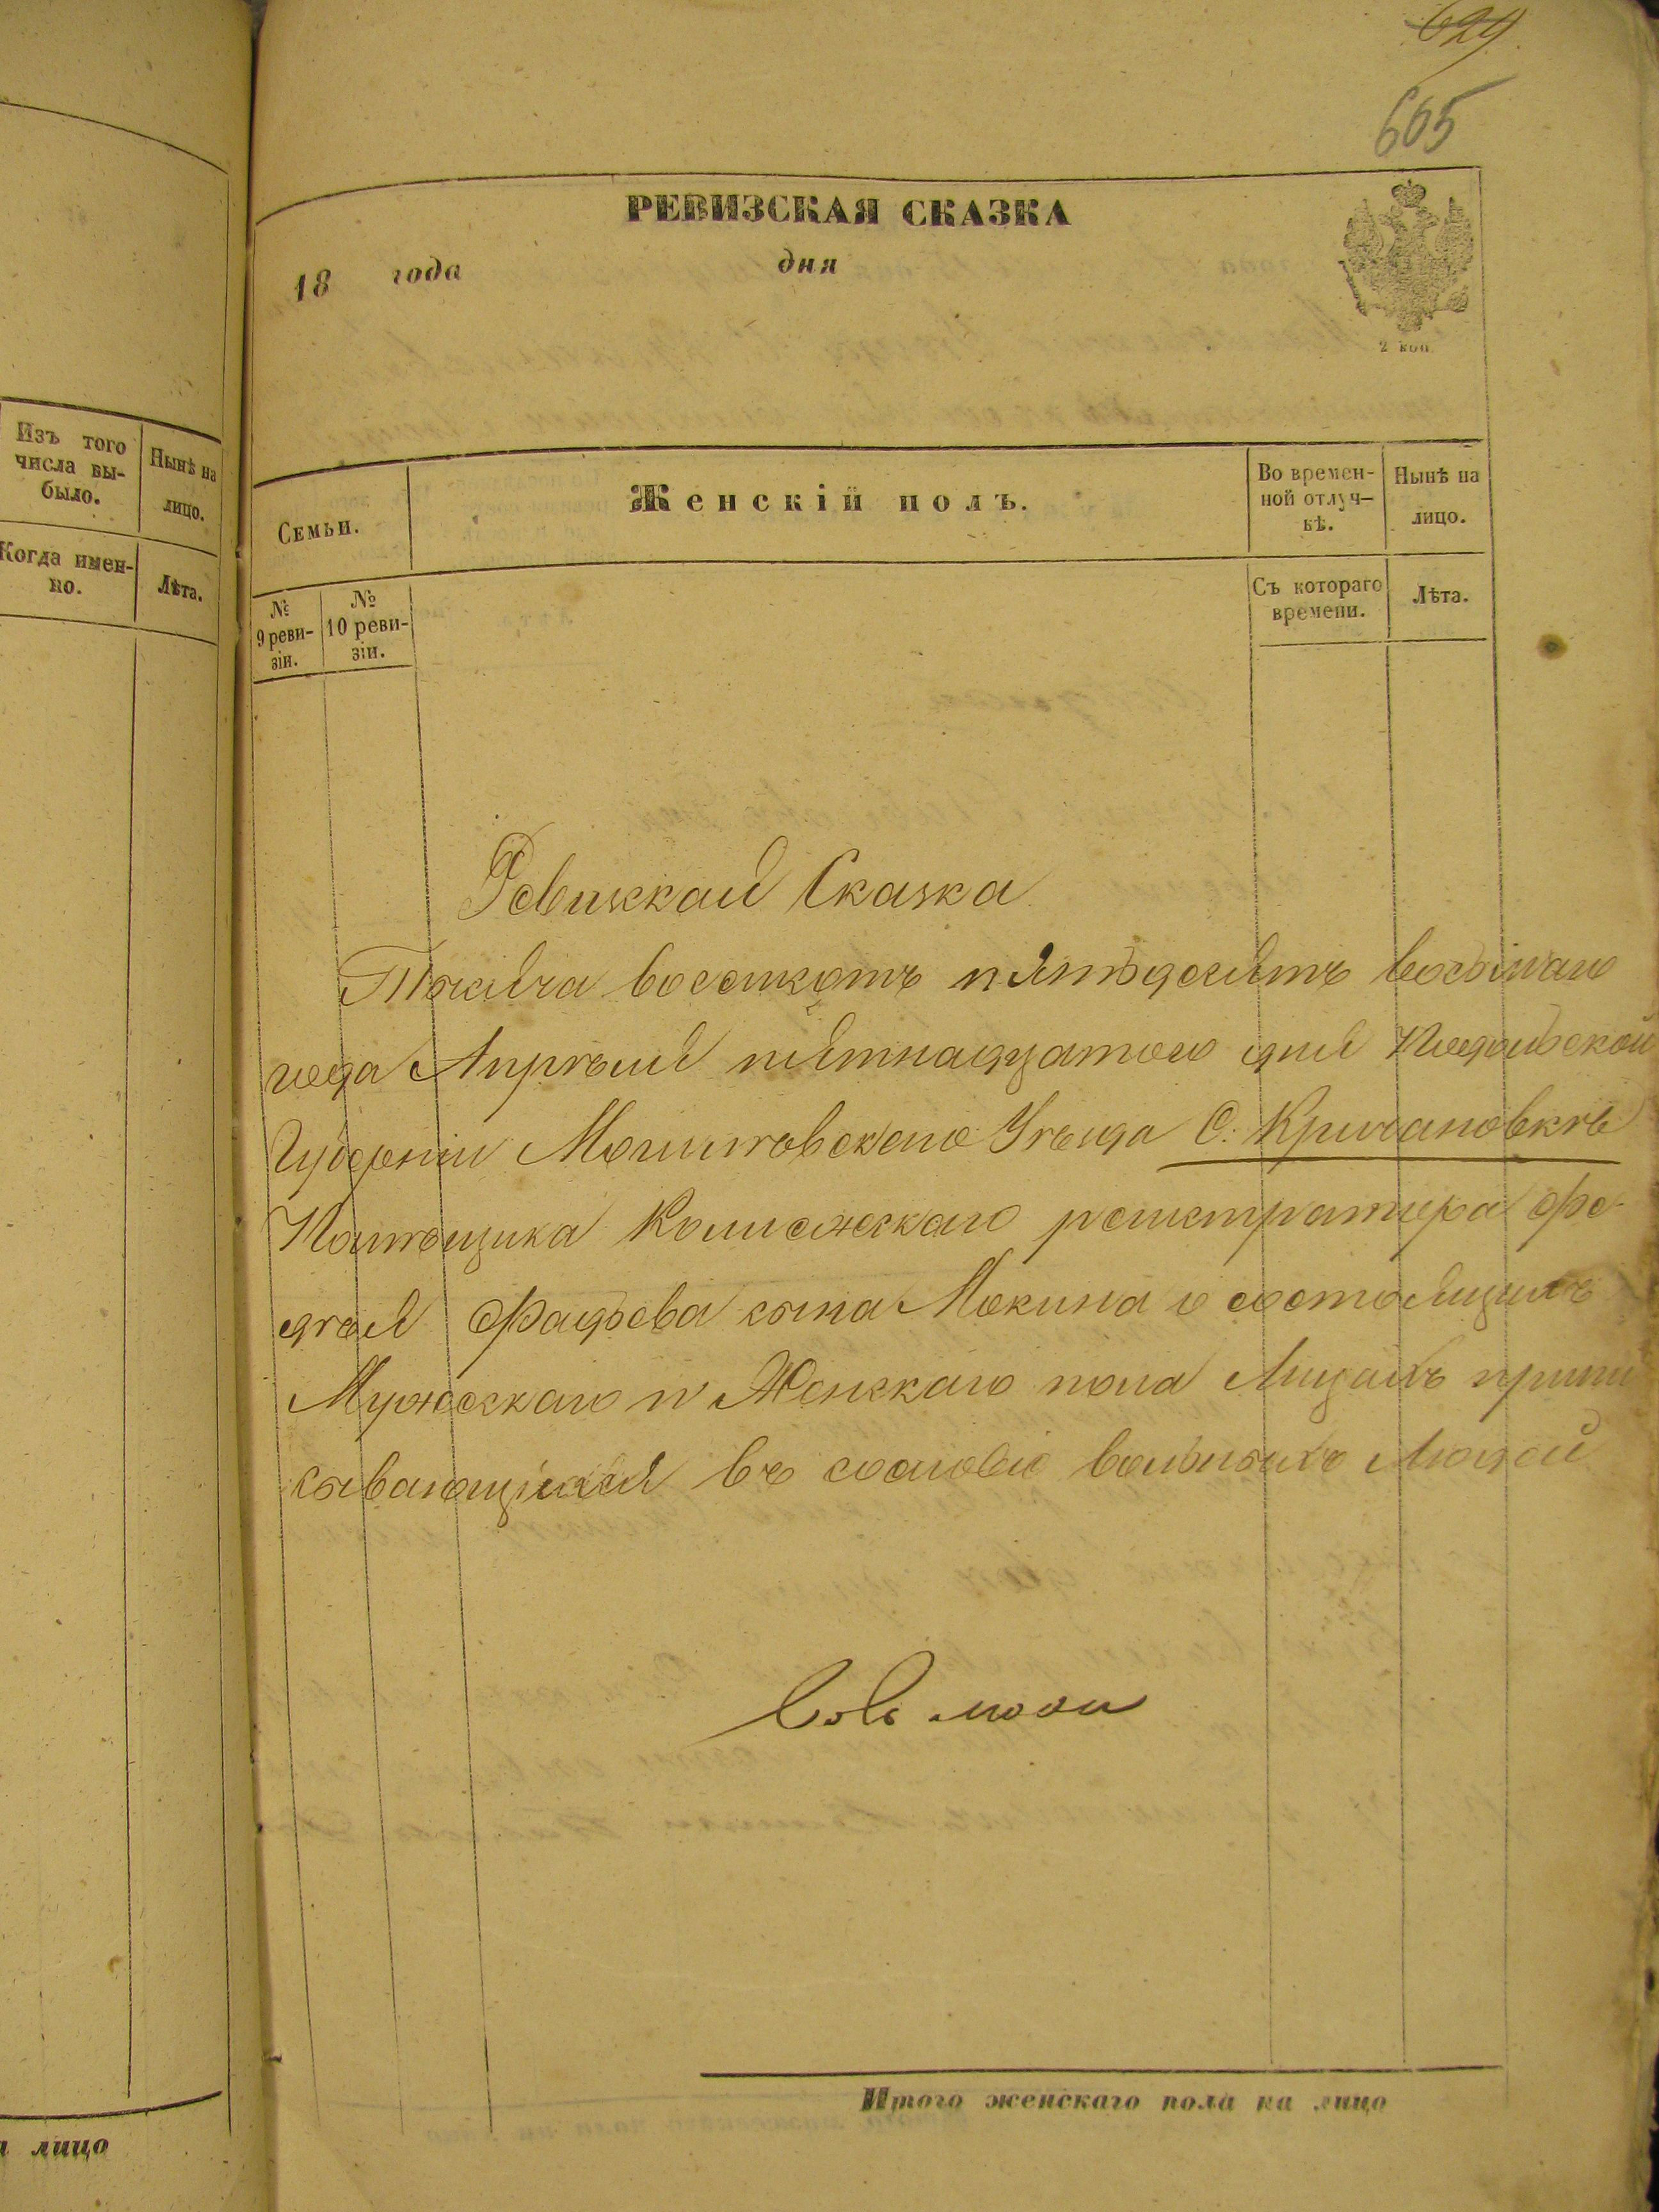 629
665
РЕВИЗСКАЯ СКАЗКА
18 года дня
2 коп.
Изъ того числа вы-было.
Нынѣ на лицо.
Когда имен-но.
Лѣта.
Семьи.
Женскій полъ.
Во времен-
ной отлуч-
кѣ.
Нынѣ на
лицо.
№
9 реви-
зіи.
№
10 реви-
зіи.
Съ котораго
времени.
Лѣта.
Ревизская Сказка
Тысяча восемсотъ пятьдесятъ восьмаго
года Апрѣля пятнадцатого дня Подольской
Губерніи Могилевского Уѣзда С. Кричановкѣ
Помѣщика Колежскаго регистратора Фе-
дѣя Фадѣева сына Мокина о состоящихъ
Мужескаго и Женскаго пола Лицахъ припи
сывающихся въ сословіе вольныхъ Людей
Итого женскаго пола на лицо
лицо